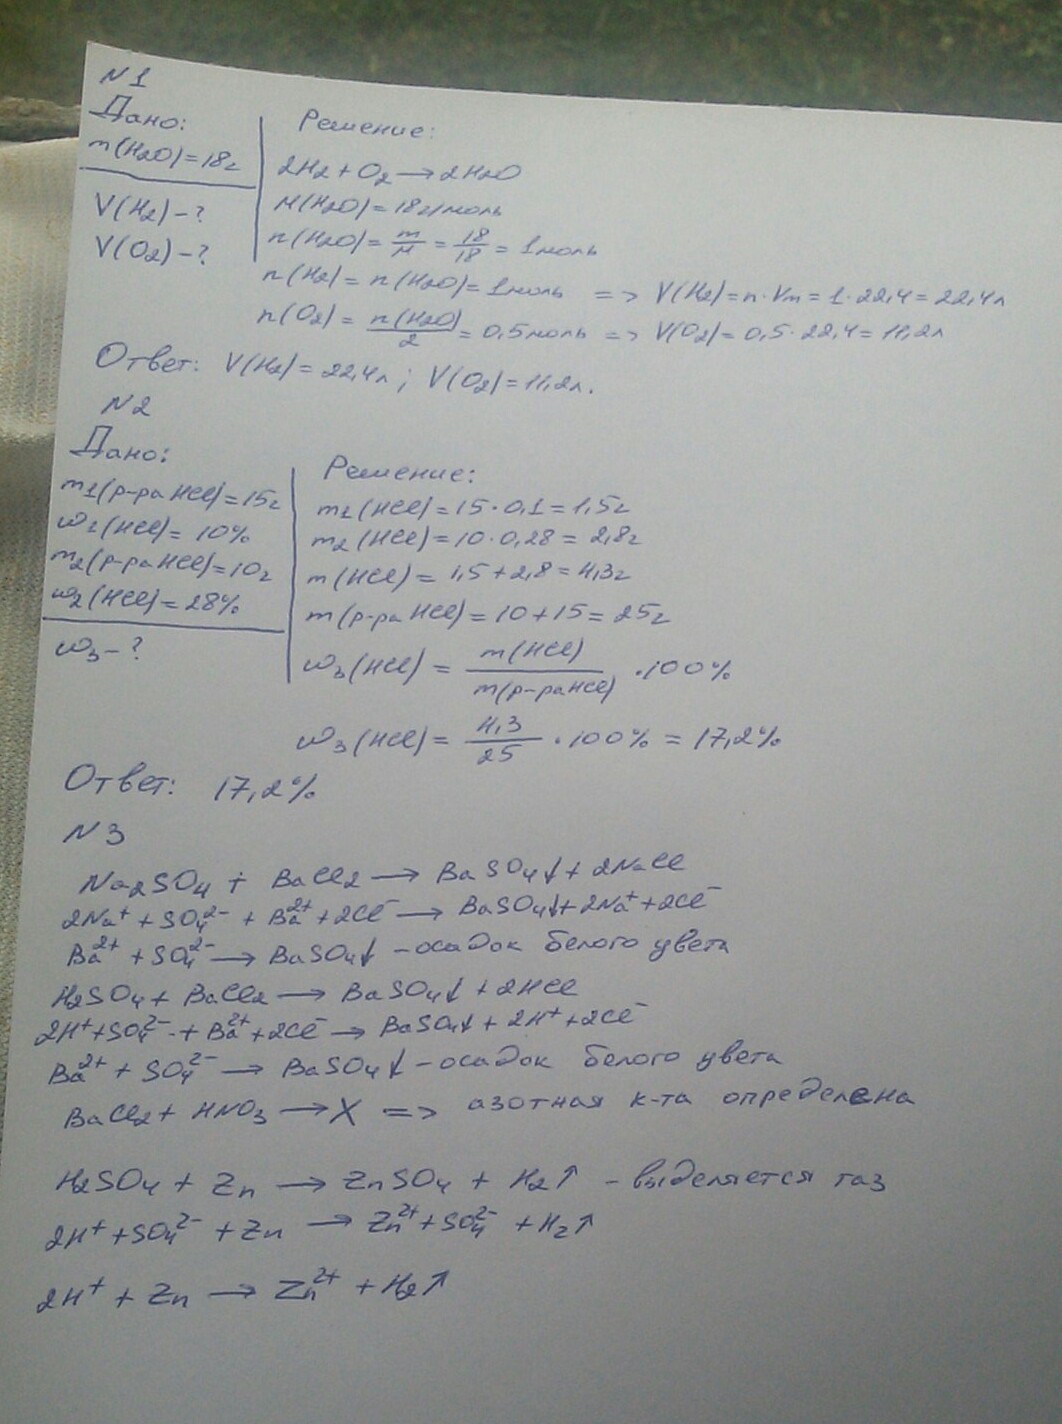 N1
Дано:
m(H2O)=18г
V(H2)-?
V(O2)-?
Решение:
2H2+O2→2H2O
M(H2O)=18г/моль
n(H2O)=m/M=18/18=1моль
n(H2)=n(H2O)=1моль => V(H2)=n·Vm=1·22,4=22,4л
n(O2)=n(H2O)/2=0,5моль => V(O2)=0,5·22,4=11,2л
Ответ: V(H2)=22,4л; V(O2)=11,2л.
N2
Дано:
m1(р-ра HCl)=15г
ω1(HCl)=10%
m2(р-ра HCl)=10г
ω2(HCl)=28%
ω3-?
Решение:
m1(HCl)=15·0,1=1,5г
m2(HCl)=10·0,28=2,8г
m(HCl)=1,5+2,8=4,3г
m(р-ра HCl)=10+15=25г
ω3(HCl)=m(HCl)/m(р-ра HCl)·100%
ω3(HCl)=4,3/25·100%=17,2%
Ответ: 17,2%
N3
Na2SO4 + BaCl2 → BaSO4↓ + 2NaCl
2Na⁺ + SO4²⁻ + Ba²⁺ + 2Cl⁻ → BaSO4↓ + 2Na⁺ + 2Cl⁻
Ba²⁺ + SO4²⁻ → BaSO4↓ - осадок белого цвета
H2SO4 + BaCl2 → BaSO4↓ + 2HCl
2H⁺ + SO4²⁻ + Ba²⁺ + 2Cl⁻ → BaSO4↓ + 2H⁺ + 2Cl⁻
Ba²⁺ + SO4²⁻ → BaSO4↓ - осадок белого цвета
BaCl2 + HNO3 → X => азотная к-та определена
H2SO4 + Zn → ZnSO4 + H2↑ - выделяется газ
2H⁺ + SO4²⁻ + Zn → Zn²⁺ + SO4²⁻ + H2↑
2H⁺ + Zn → Zn²⁺ + H2↑